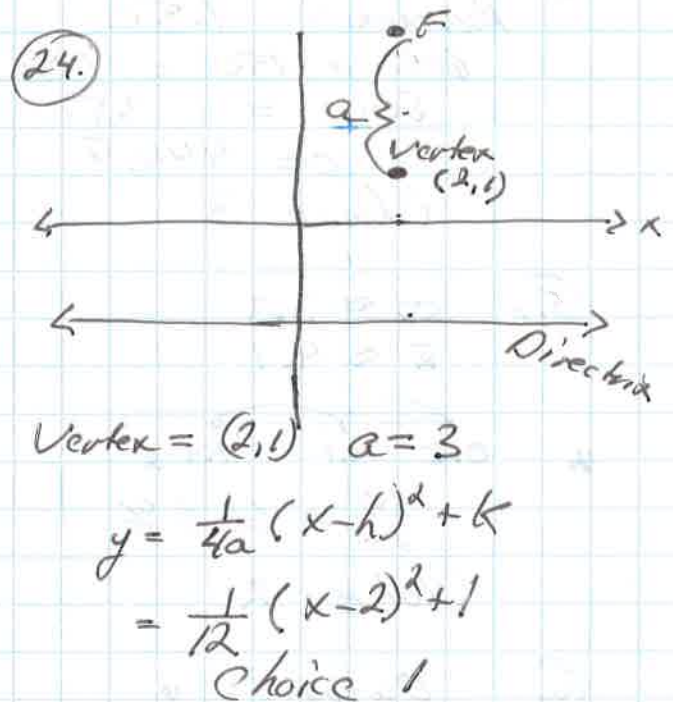 24.
F
a
Vertex
(2,1)
x
Directrix
Vertex = (2,1) a = 3
y = 1/4a (x-h)² + k
= 1/12 (x-2)² + 1
Choice 1